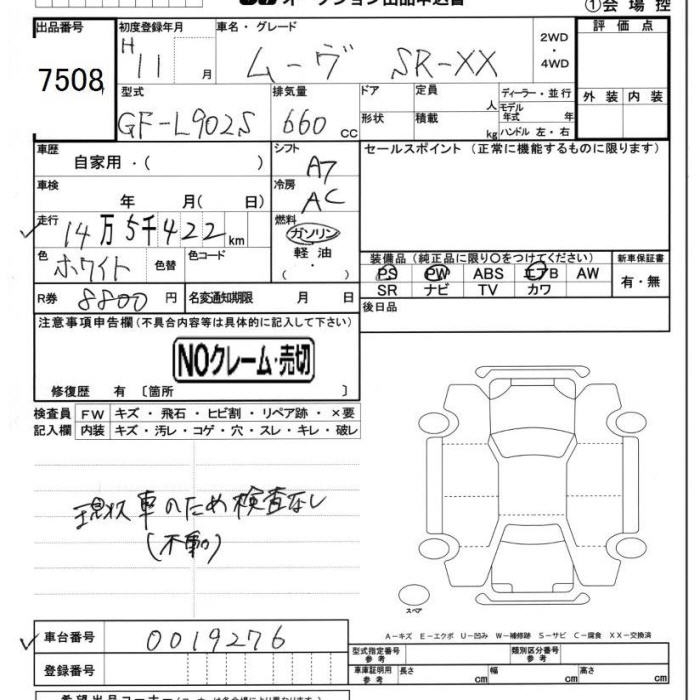 オークション出品申込書
①会場控
出品番号 7508
初度登録年月 H 11 月
車名・グレード ムーヴ SR-XX
2WD・4WD
評価点
外装 内装
型式 GF-L902S
排気量 660 cc
ドア
形状
定員 人
積載 kg
ディーラー・並行
モデル年式 年
ハンドル 左・右
車歴 自家用・( )
シフト A7
セールスポイント (正常に機能するものに限ります)
車検 年 月( 日)
冷房 AC
走行 14万5千422km
燃料 ガソリン
軽油
( ・ )
色 ホワイト 色替 色コード
装備品(純正品に限り〇をつけてください) 新車保証書
PS PW ABS エアB AW 有・無
SR ナビ TV カワ
R券 8800円 名変通知期限 月 日
後日品
注意事項申告欄(不具合内容等は具体的に記入して下さい)
NOクレーム・売切
修復歴 有 〔箇所 〕
検査員 FW キズ・飛石・ヒビ割・リペア跡・×要
記入欄 内装 キズ・汚レ・コゲ・穴・スレ・キレ・破レ
現状車のため検査なし
(不動)
スペア
A－キズ E－エクボ U－凹み W－補修跡 S－サビ C－腐食 XX－交換済
車台番号 0019276
型式指定番号 参考 類別区分番号 参考
登録番号
車庫証明用 参考 長さ cm 幅 cm 高さ cm
希望出品コーナー